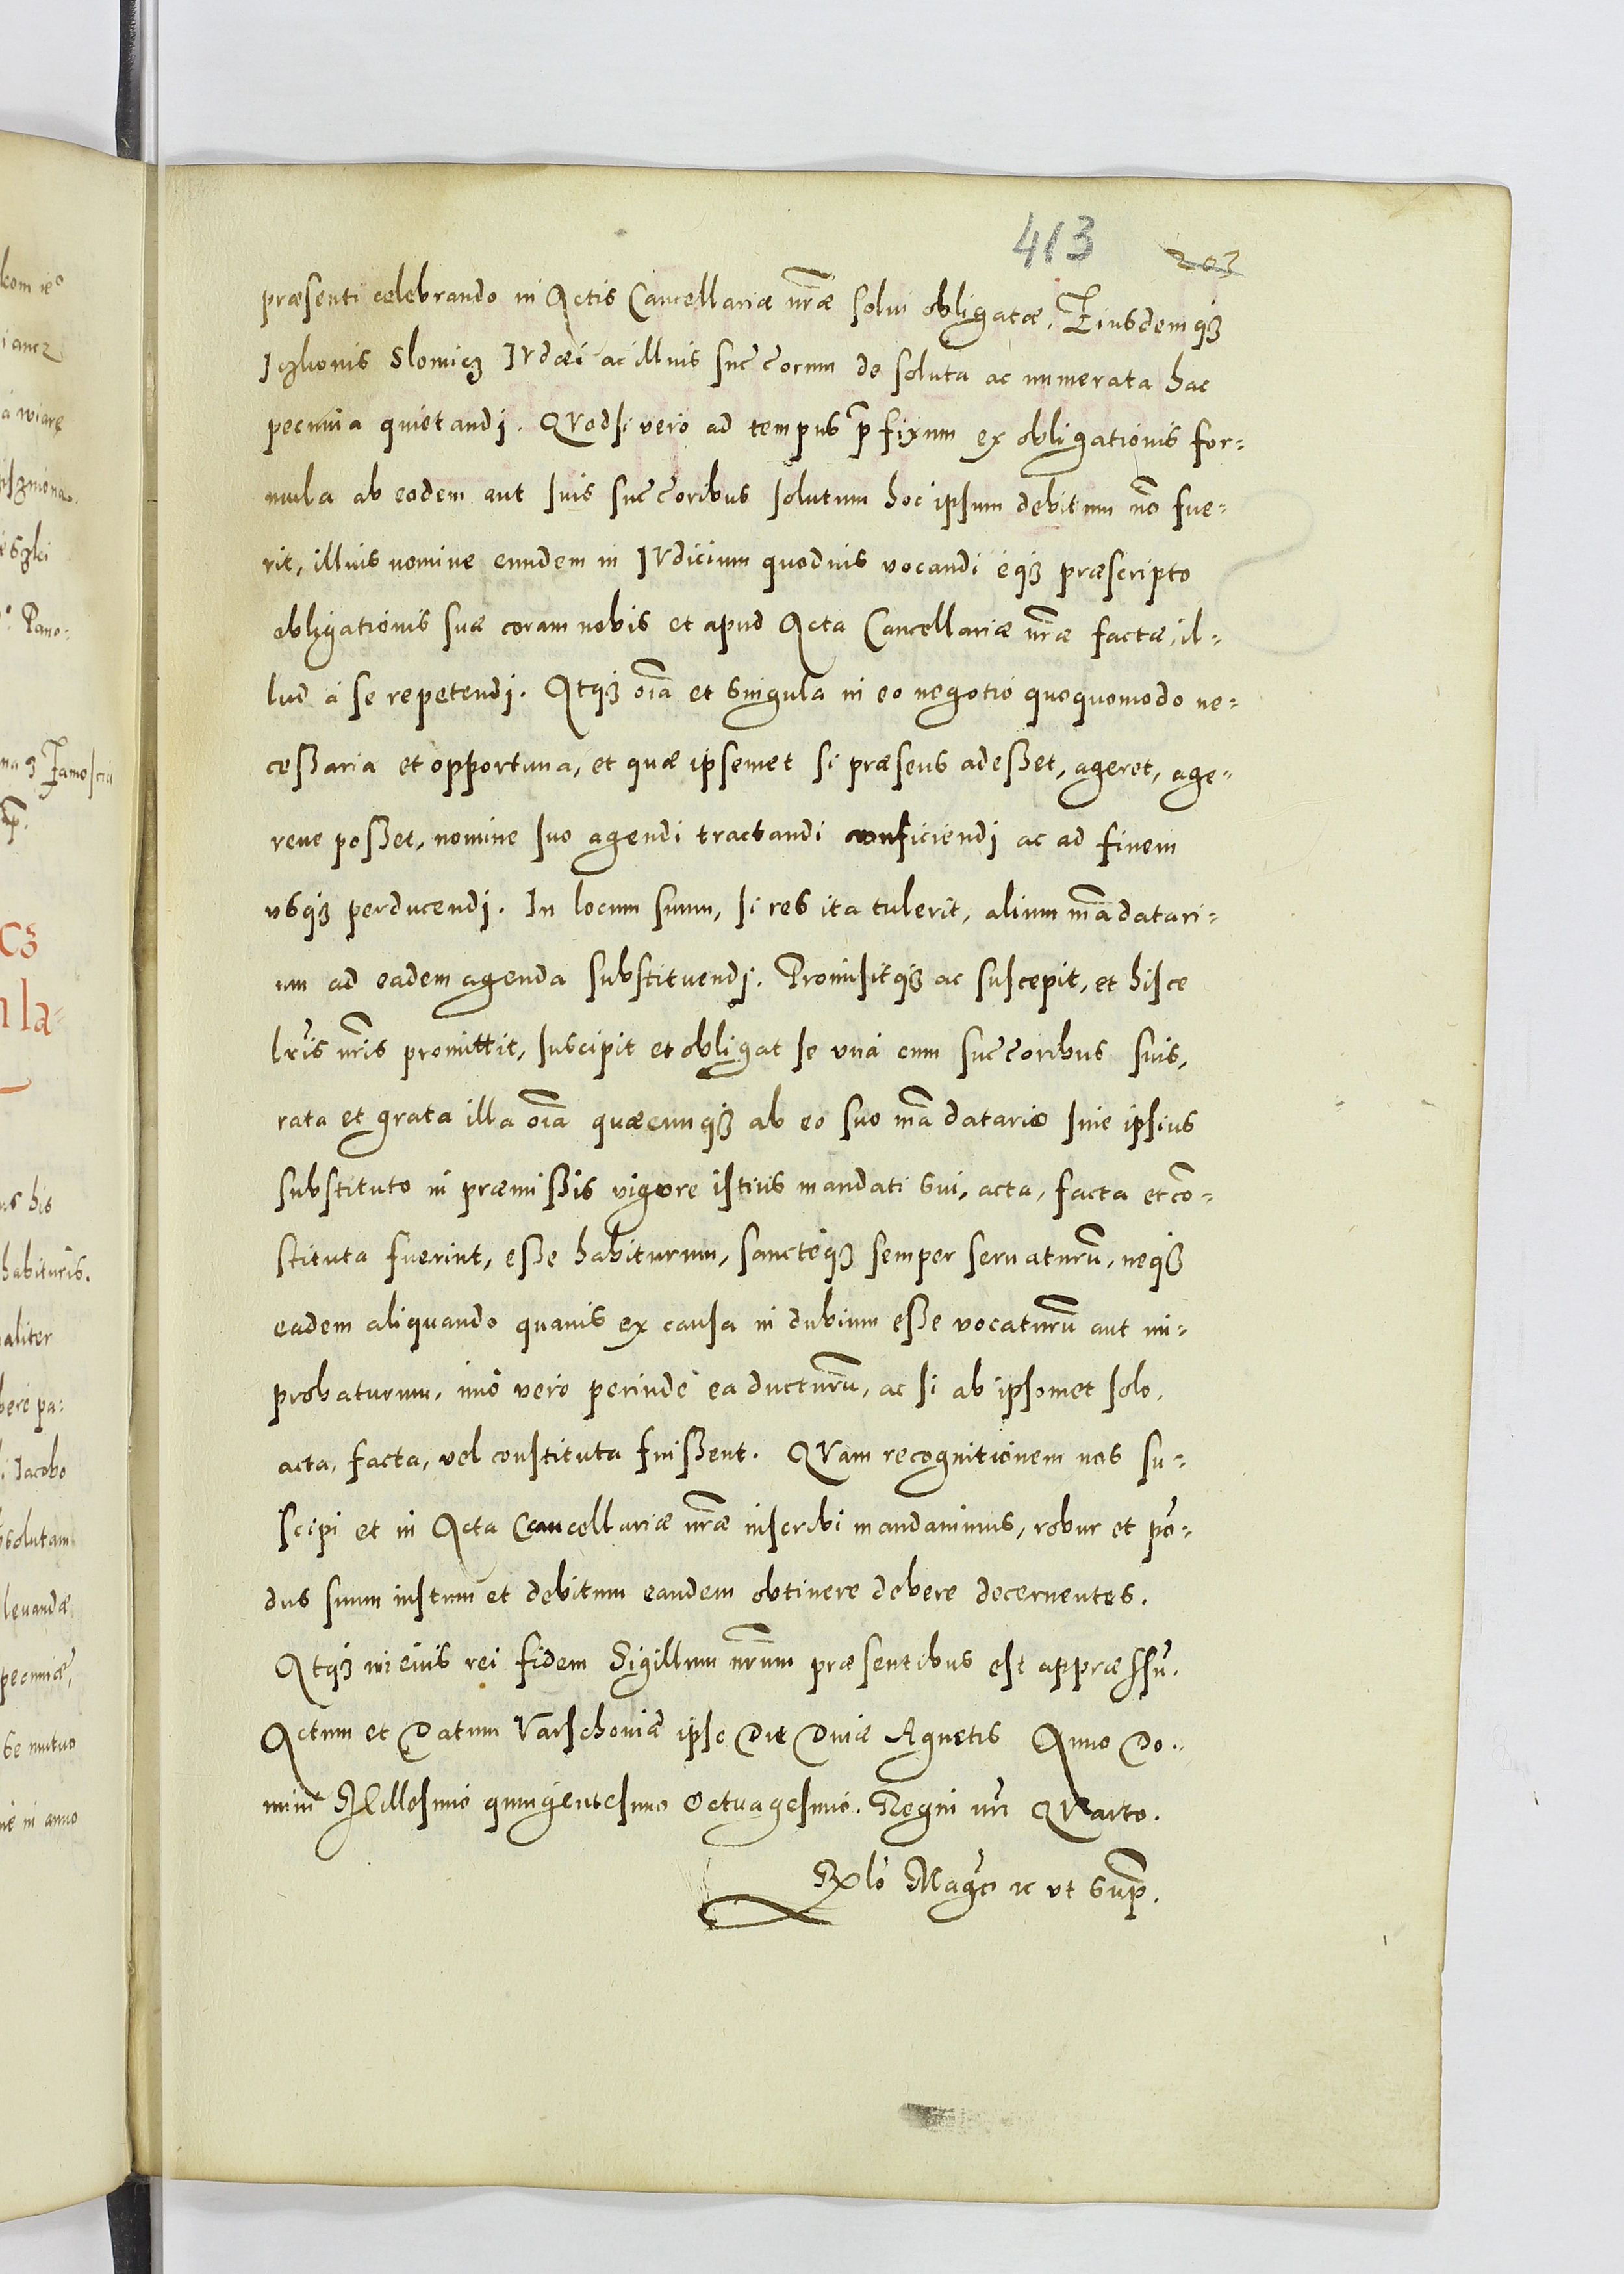 413 203
præsenti celebrando in Actis Cancellariæ nr̃æ solui obligatæ. Eiusdemqꝫ
Iczhonis Slomicz IVdæi ac illius succ̃orum de soluta ac numerata hac
pecunia quietandj. QVodsi vero ad tempus p̃fixum ex obligationis for-
mula ab eodem aut suis succ̃oribus solutum hoc ipsum debitum nõ fue-
rit, illius nomine eundem in IVdicium quoduis vocandi éqꝫ præscripto
obligationis suæ coram nobis et apud Acta Cancellariæ nr̃æ factæ, il-
lud á se repetendj. Atqꝫ oĩa et singula in eo negotio quoquomodo ne-
ceßaria et opportuna, et quæ ipsemet si præsens adeßet, ageret, age-
reue poßet, nomine suo agendi tractandi conficiendj ac ad finem
vsqꝫ perducendj. In locum suum, si res ita tulerit, alium mãdatari-
um ad eadem agenda substituendj. Promisitqꝫ ac suscepit, et hisce
lr̃is nr̃is promittit, suscipit et obligat se vná cum succ̃oribus suis,
rata et grata illa oĩa quæcunqꝫ ab eo suo mãdatario siue ipsius
substituto in præmißis vigore istius mandati sui, acta, facta et cõ-
stituta fuerint, eße habiturum, sanctéqꝫ semper seruaturũ, neqꝫ
eadem aliquando quauis ex causa in dubium eße vocaturũ aut im-
probaturum, imò vero perinde ea ducturũ, ac si ab ipsomet solo,
acta, facta, vel constituta fuißent. QVam recognitionem nos su-
scipi et in Acta Cancellariæ nr̃æ inscribi mandauimus, robur et põ-
dus suum iustum et debitum eandem obtinere debere decernentes.
Atqꝫ in eius rei fidem Sigillum nr̃um præsentibus est appræssũ.
Actum et Datum Varschouiæ ipso Die Diuæ Agnetis Anno Do-
mini Millesimo quingentesimo Octuagesimo. Regni nr̃i QVarto.
Rx̃lõ Magc̃i ꝛc vt sup̃.